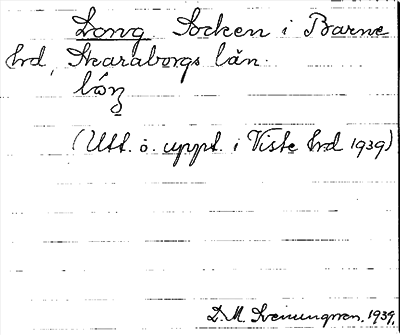 Long Socken i Barne
hd, Skaraborgs län.
(Utt. o. uppt. i Viste hd 1939)
D. M. Sveinungsson. 1939.